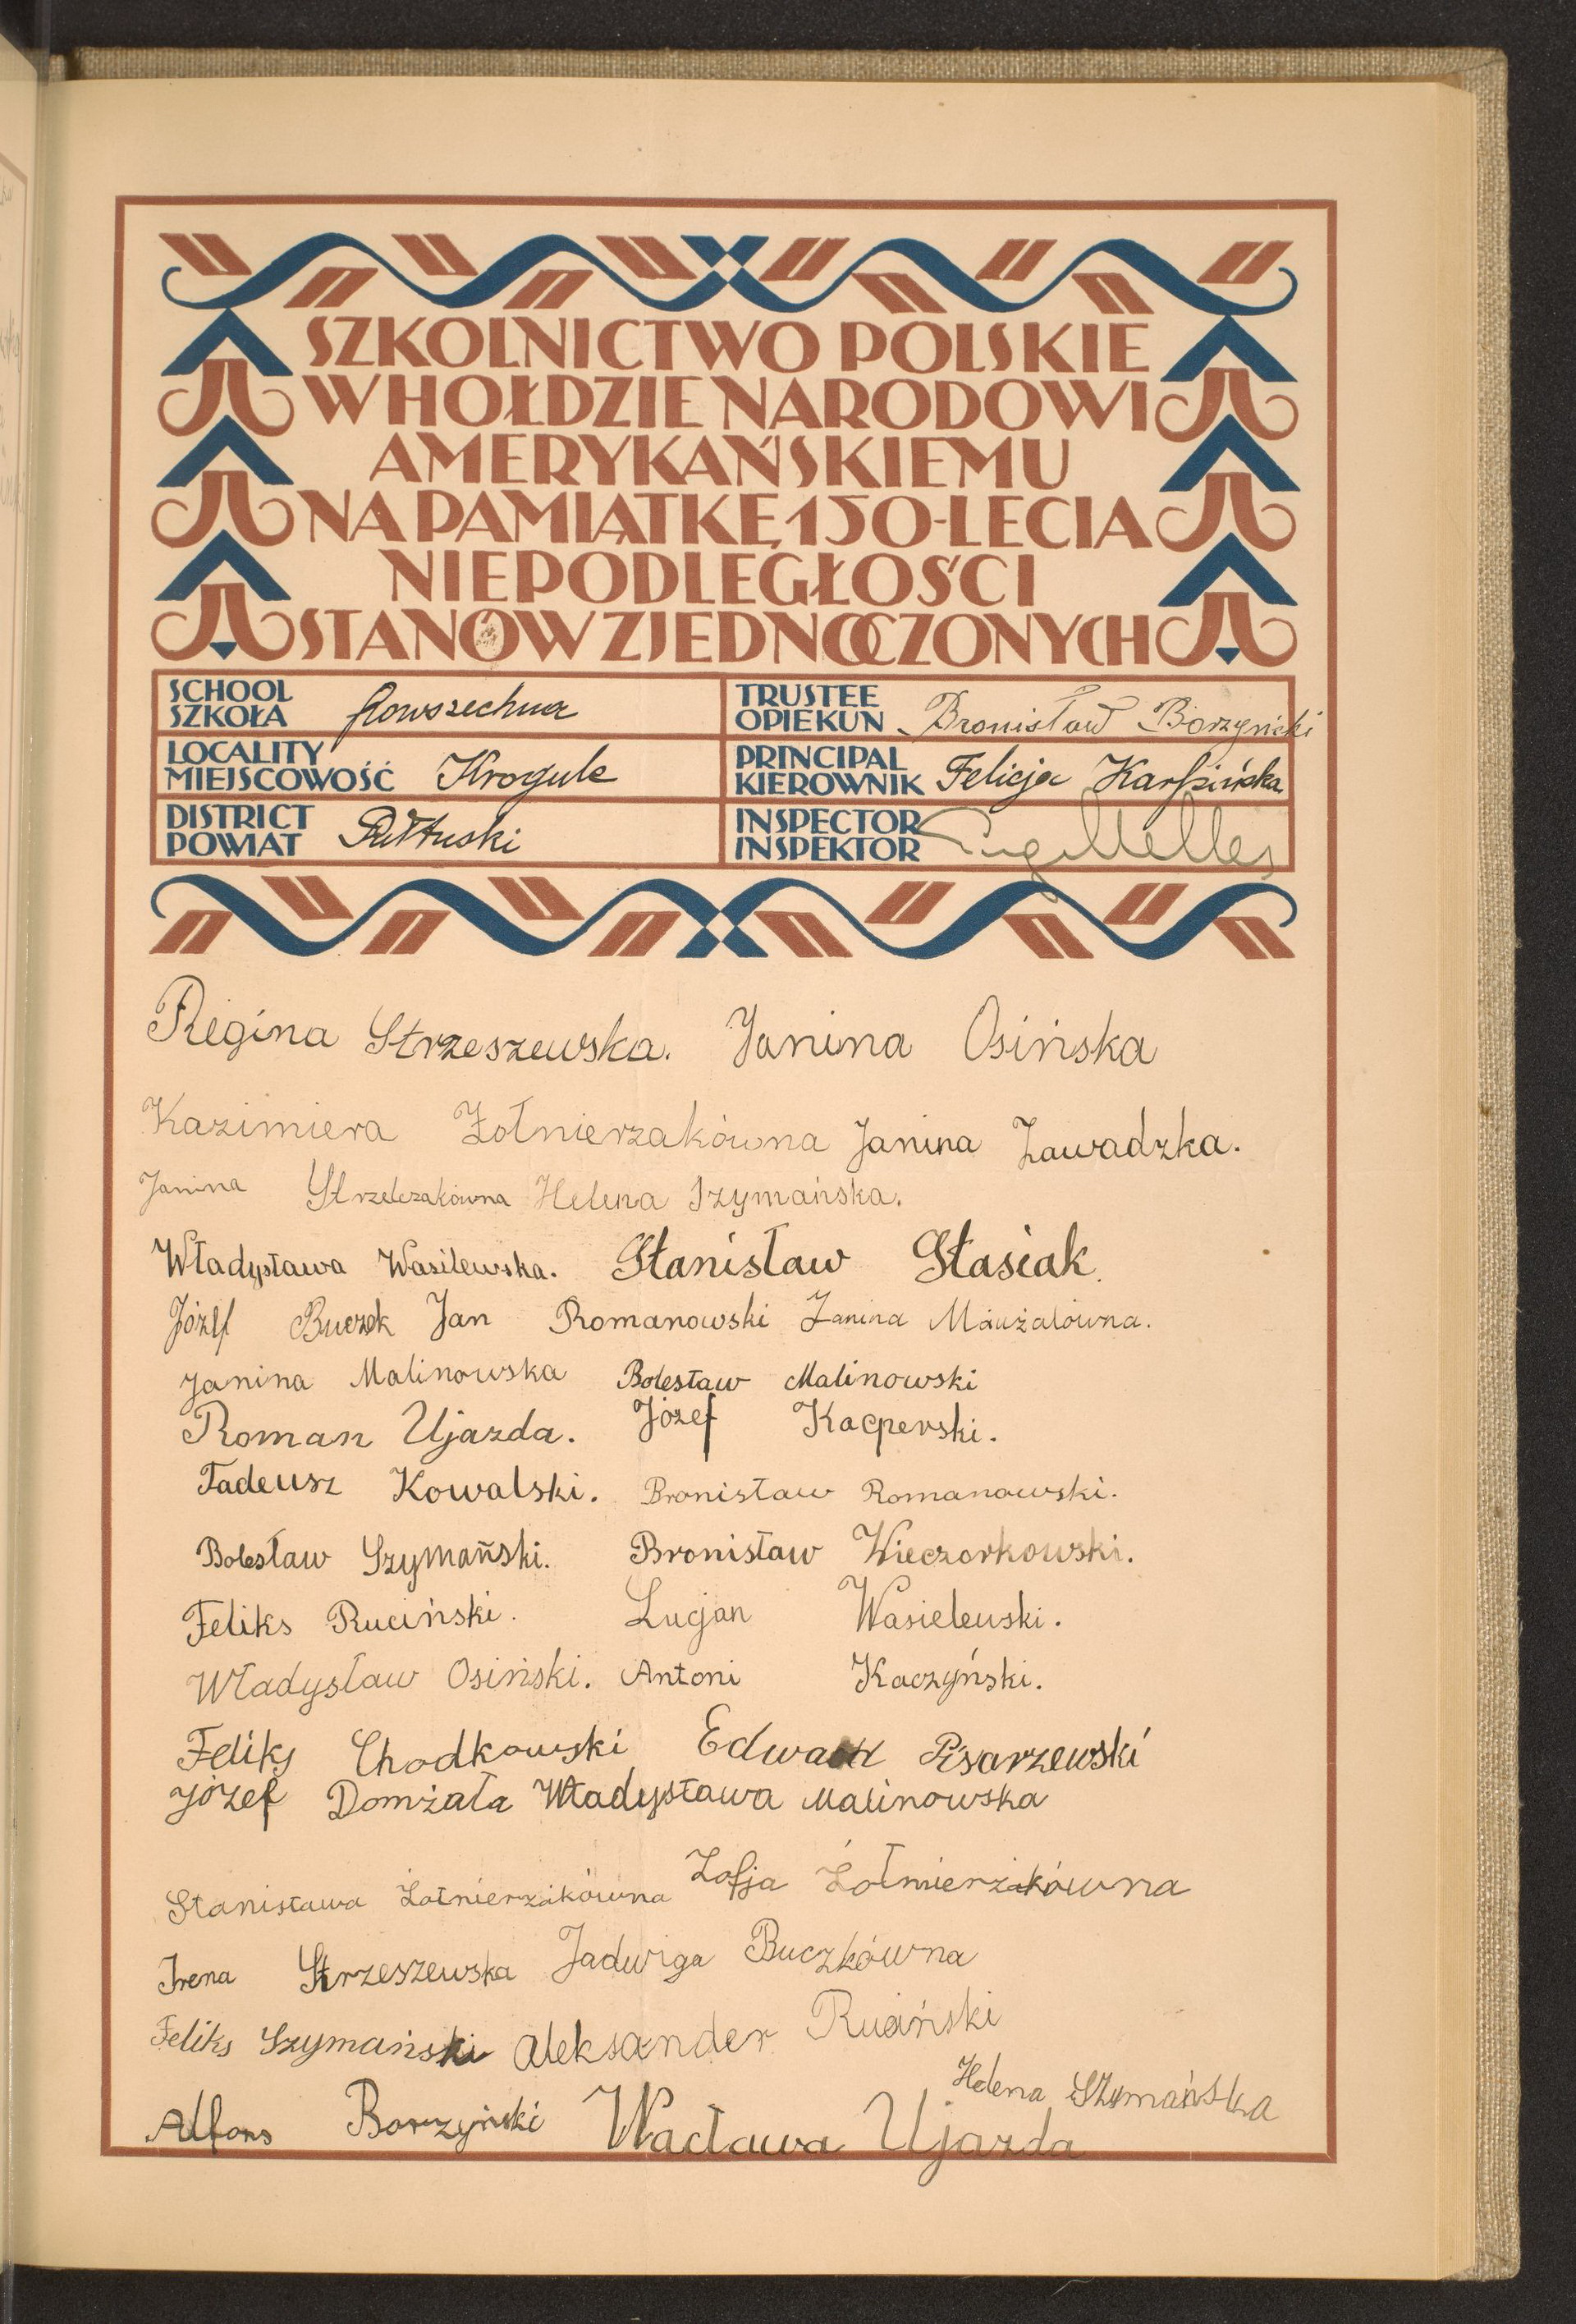 SZKOLNICTWO POLSKIE
W HOŁDZIE NARODOWI
AMERYKAŃSKIEMU
NA PAMIĄTKĘ 150-LECIA
NIEPODLEGŁOŚCI
STANÓW ZJEDNOCZONYCH
SCHOOL
SZKOŁA Powszechna
TRUSTEE
OPIEKUN Bronisław Borzyński
LOCALITY
MIEJSCOWOŚĆ Krogule
PRINCIPAL
KIEROWNIK Felicja Karpińska
DISTRICT
POWIAT Pułtuski
INSPECTOR
INSPEKTOR
Regina Strzeszewska. Janina Osińska
Kazimiera Żołnierzakówna Janina Zawadzka.
Janina Strzelczakówna Helena Szymańska.
Władysława Wasilewska. Stanisław Stasiak.
Józef Buczek Jan Romanowski Janina
Janina Malinowska Bolesław Malinowski
Roman Ujazda. Józef Kacperski.
Tadeusz Kowalski. Bronisław Romanowski.
Bolesław Szymański. Bronisław Wieczorkowski.
Feliks Ruciński. Lucjan Wasielewski.
Władysław Osiński. Antoni Kaczyński.
Feliks Chodkowski Edward Pisarzewski
Józef Domżała Władysława Malinowska
Stanisława Żołnierzakówna Zofja Żołnierzakówna
Irena Strzeszewska Jadwiga Buczkówna
Feliks Szymański Aleksander Ruciński
Helena Szymańska
Alfons Borzyński Wacława Ujazda